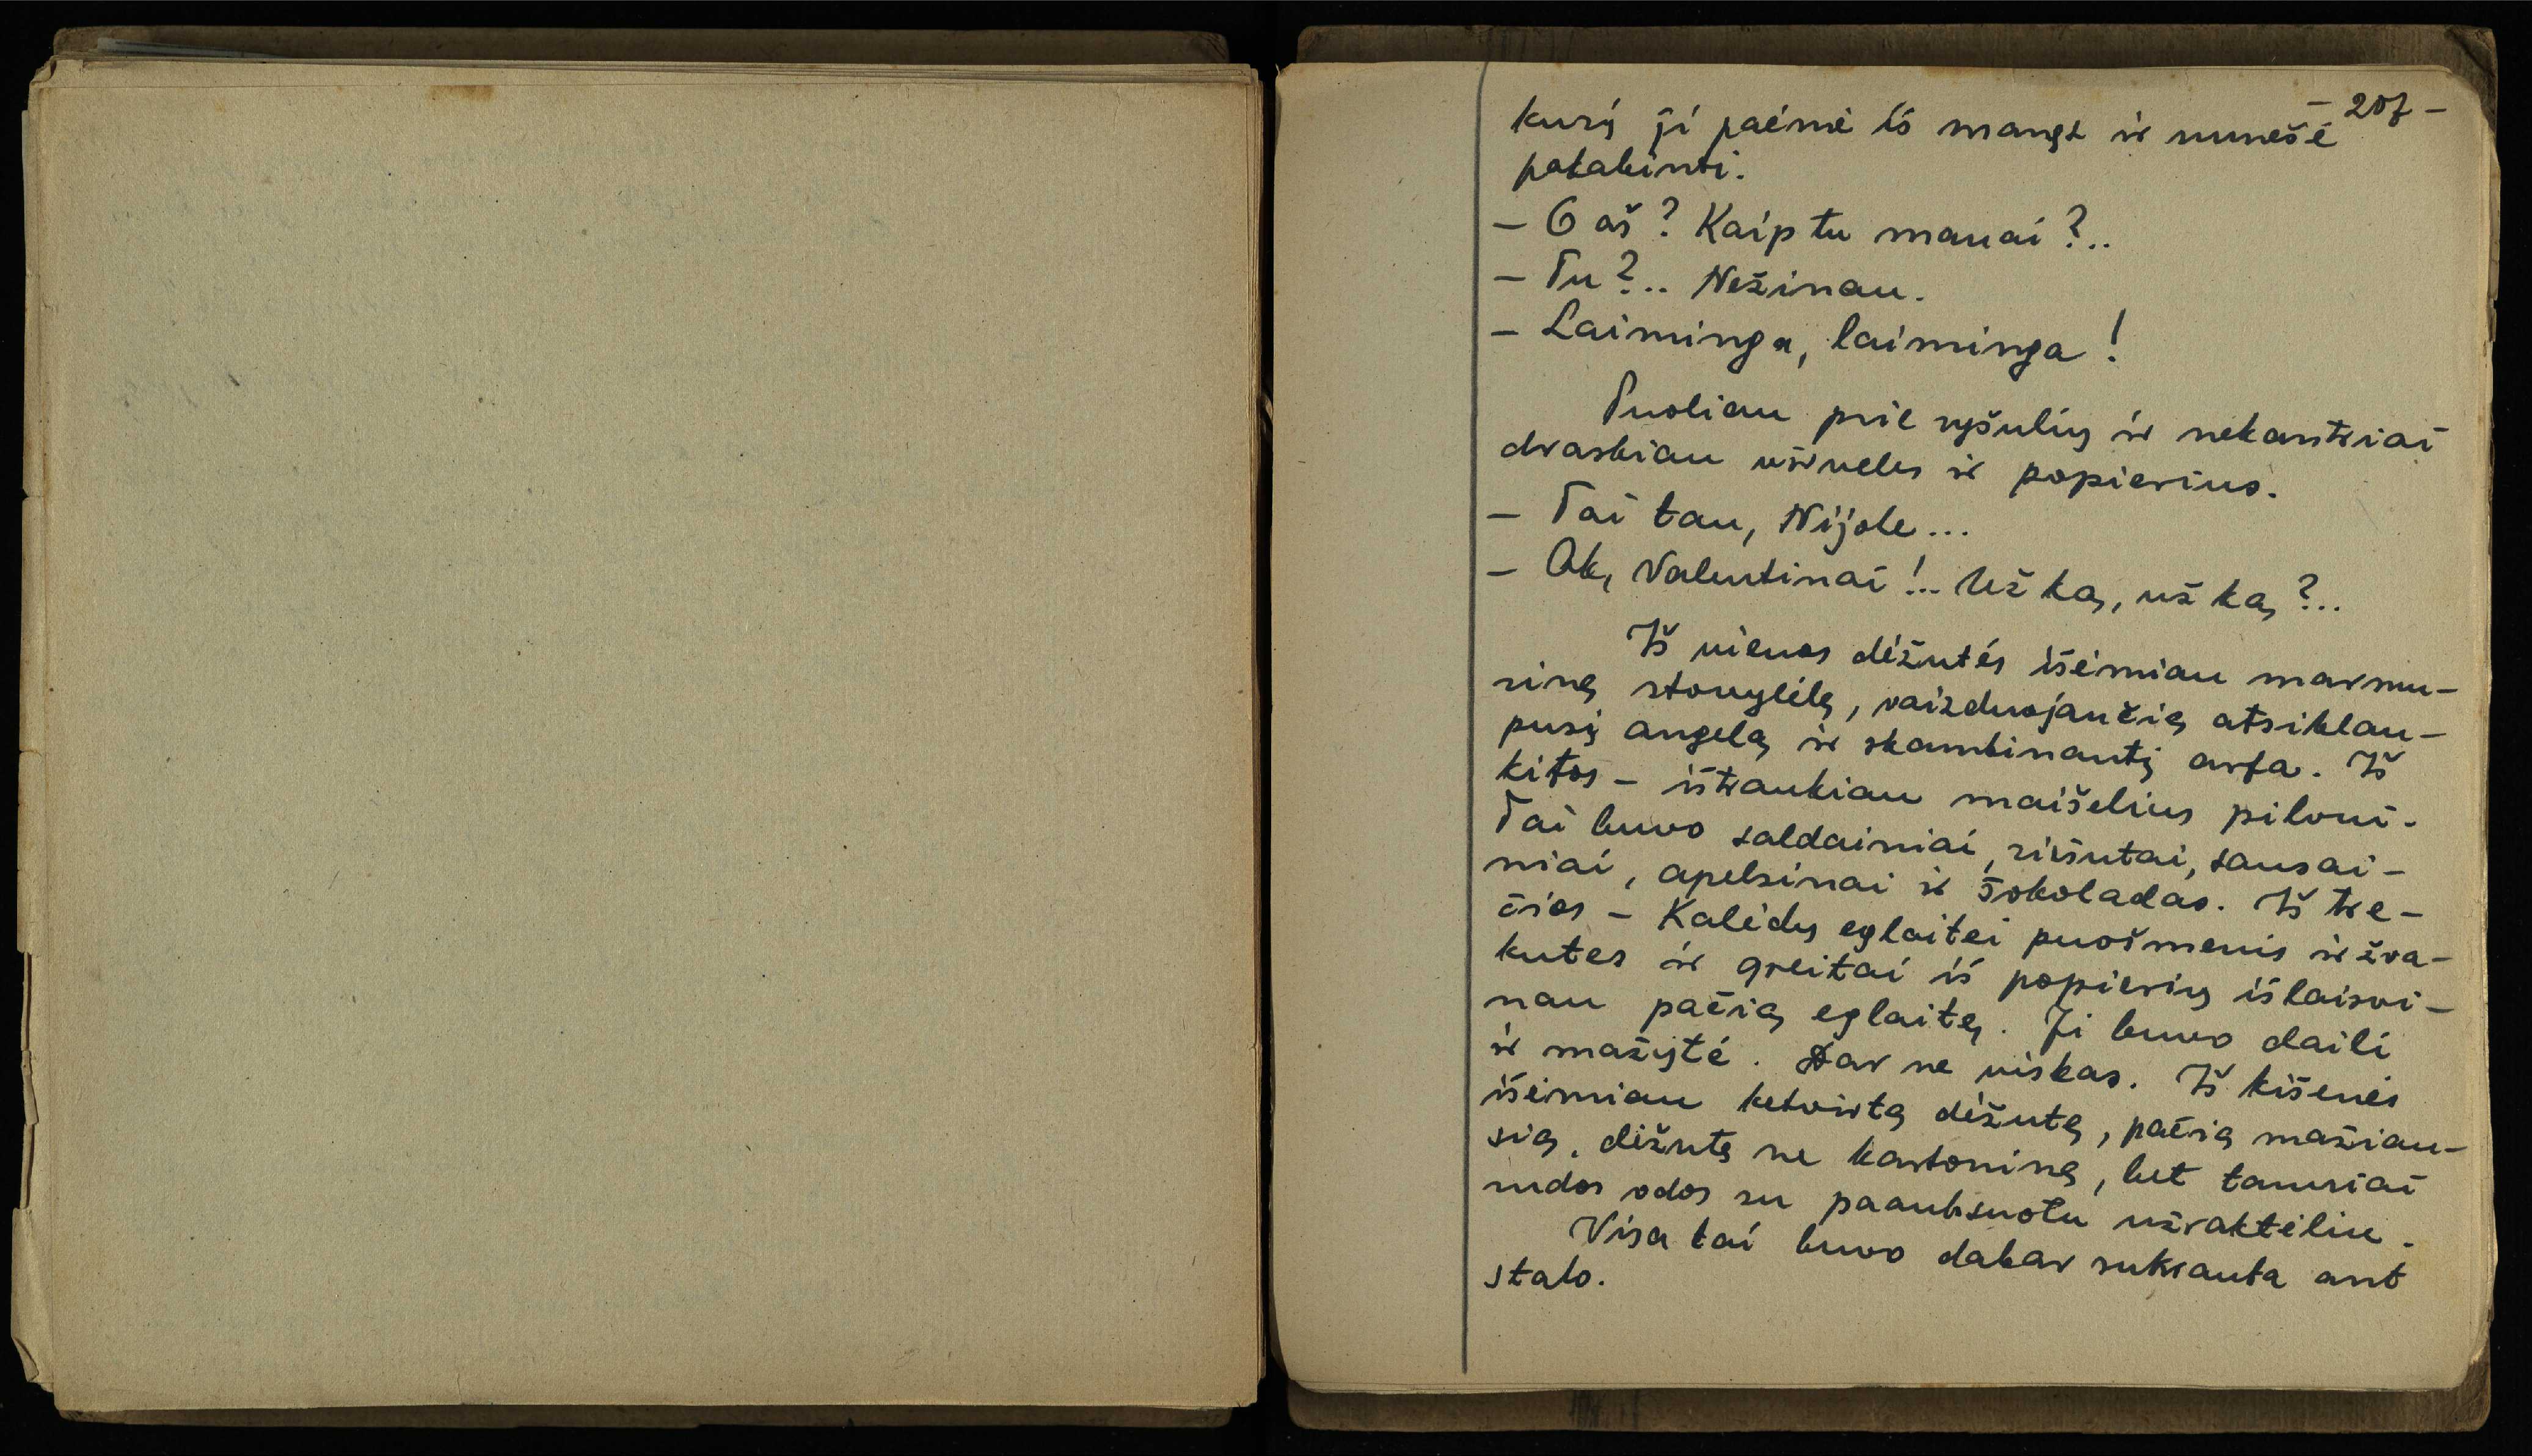 – 207 –
kurį ji paėmė iš manęs ir nunešė
pakabinti.
– O aš? Kaip tu manai?..
– Tu?.. Nežinau.
– Laiminga, laiminga!
Puoliau prie ryšulių ir nekantriai
draskiau virveles ir popierius.
– Tai tau, Nijole...
– Ak, Valentinai!... Už ką, už ką?..
Iš vienos dėžutės išėmiau marmu-
rinę stovylėlę, vaizduojančią atsiklau-
pusį angelą ir skambinantį arfa. Iš
kitos – ištraukiau maišelius pilvui.
Tai buvo saldainiai, riešutai, sausai-
niai, apelsinai ir šokoladas. Iš tre-
čios – Kalėdų eglaitei puošmenis ir žva-
kutes ir greitai iš popierių išlaisvi-
nau pačią eglaitę. Ji buvo daili
ir mažytė. Dar ne viskas. Iš kišenės
išėmiau ketvirtą dėžutę, pačią mažiau-
sią, dėžutę ne kartoninę, bet tamsiai
rudos odos su paauksuotu užraktėliu.
Visa tai buvo dabar sukrauta ant
stalo.